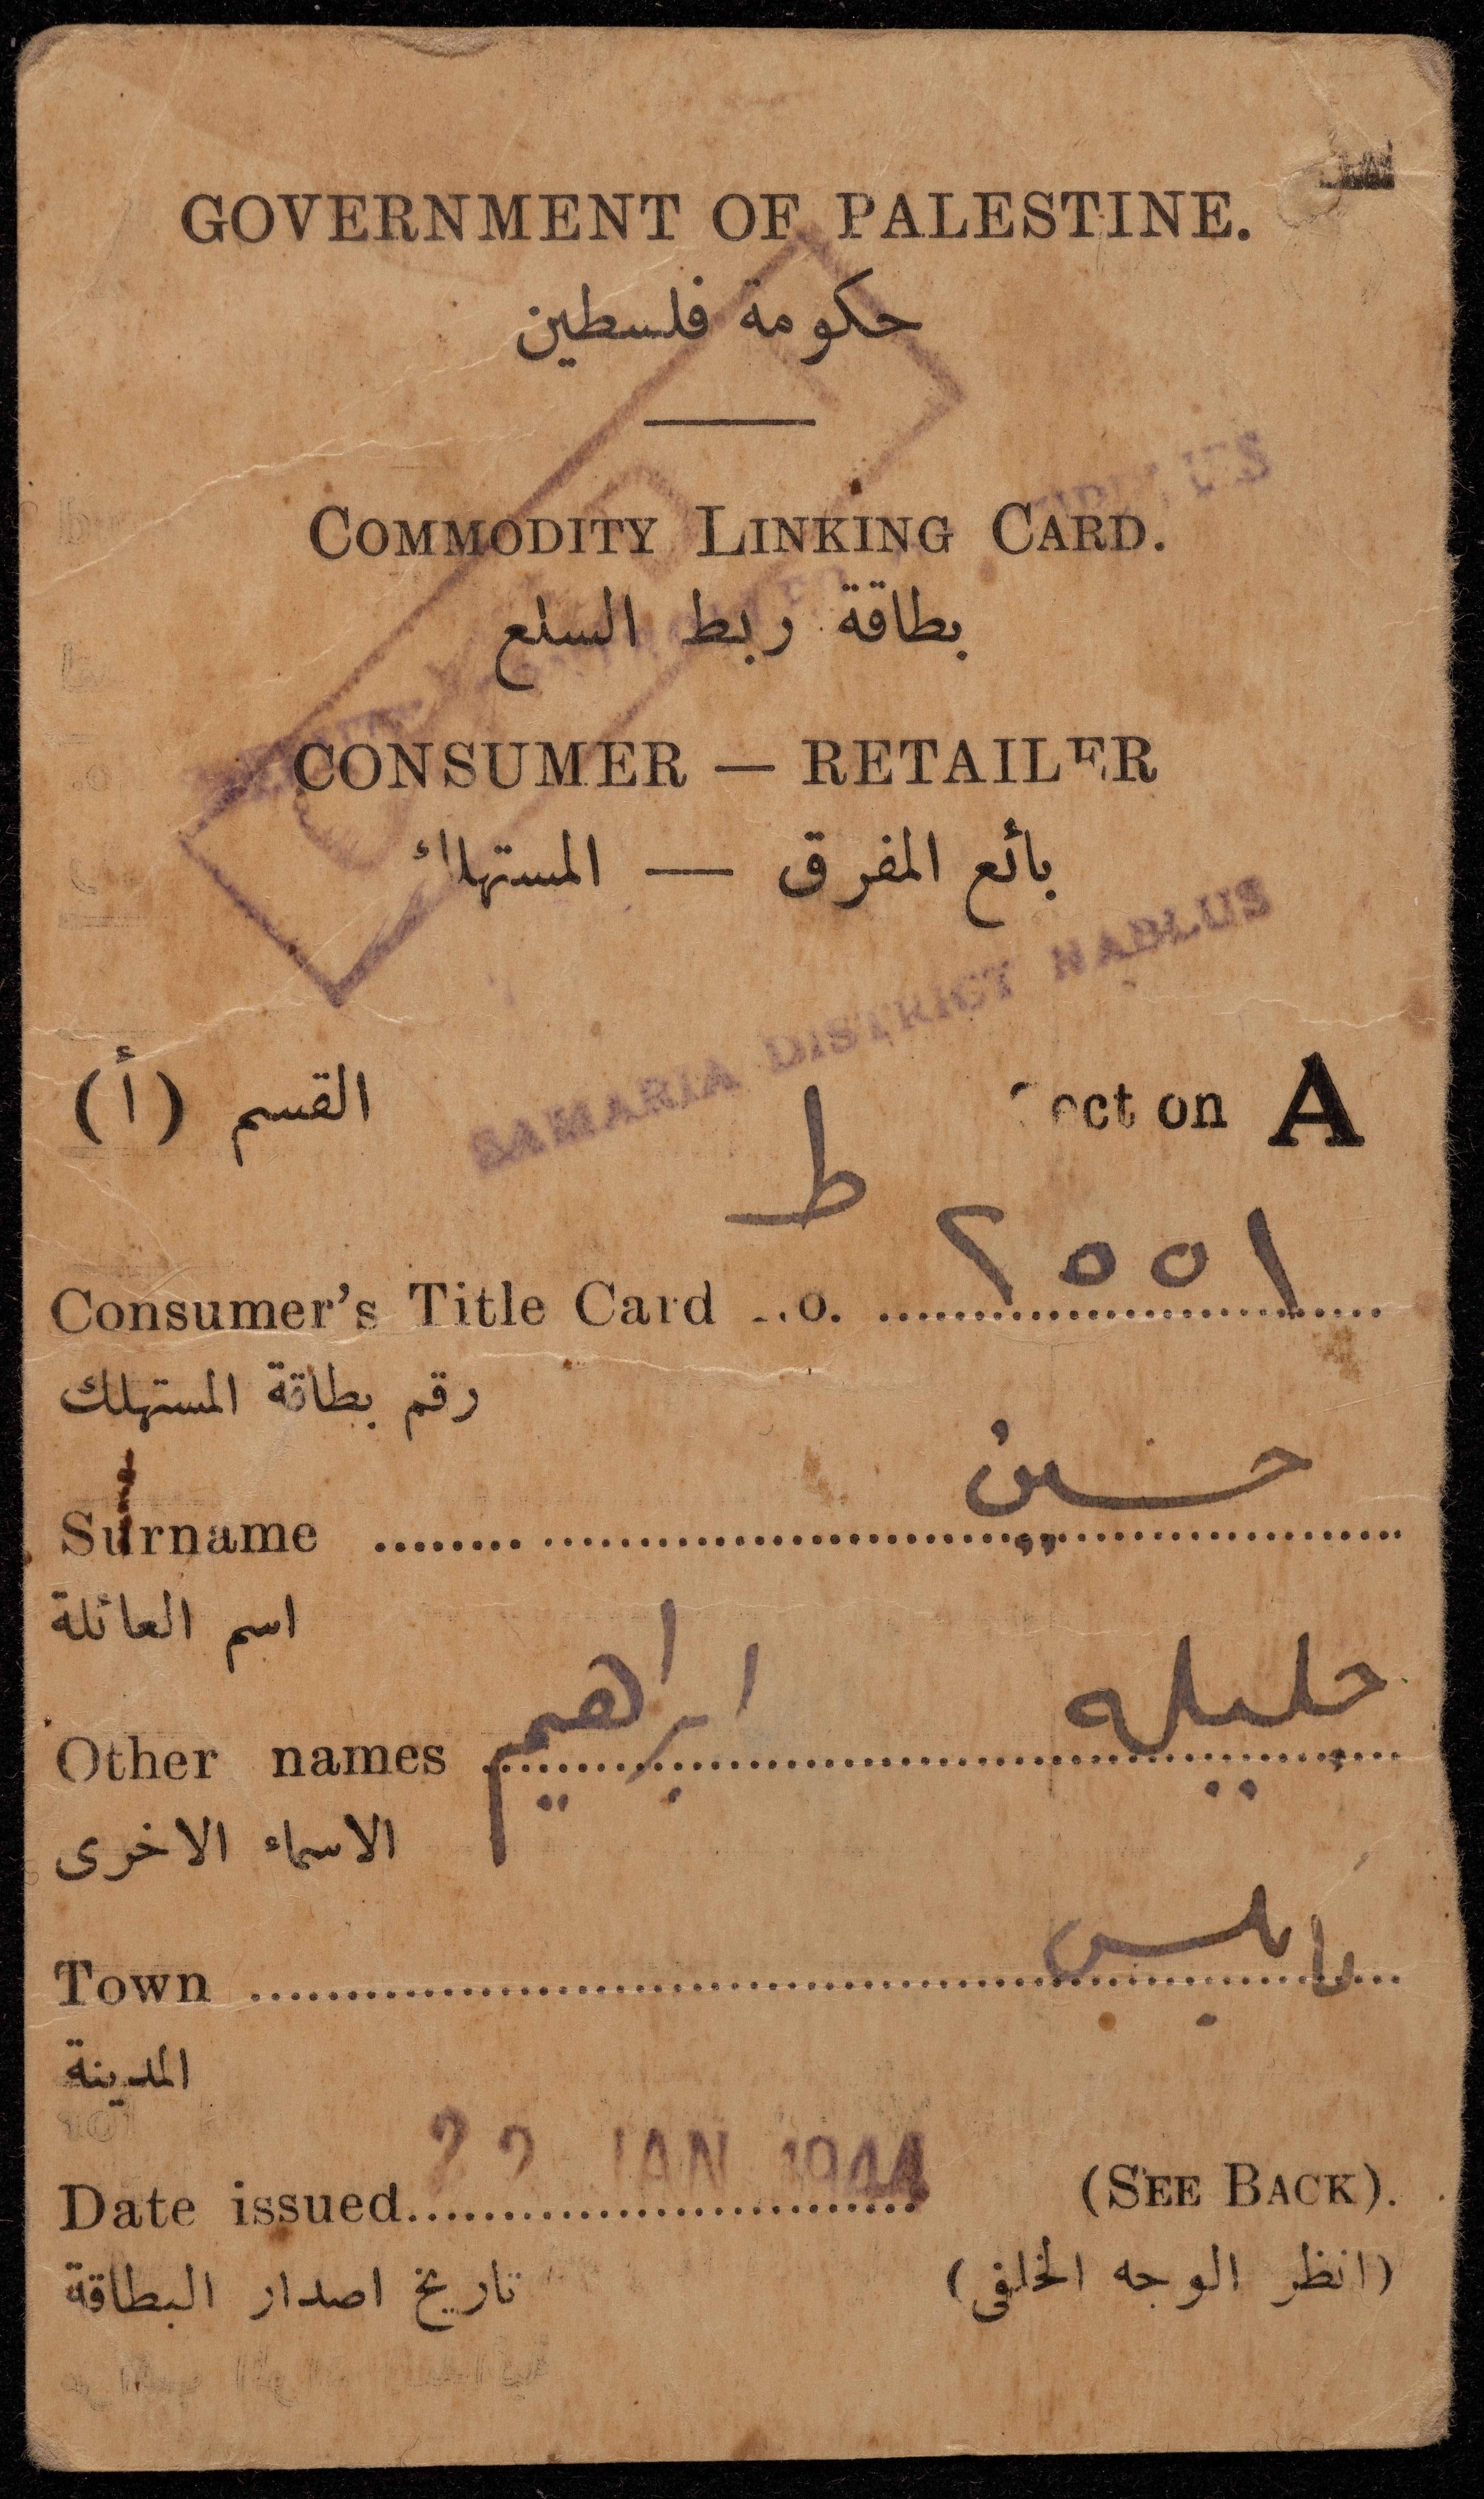 GOVERNMENT OF PALESTINE.
حكومة فلسطين
COMMODITY LINKING CARD.
بطاقة ربط السلع
CONSUMER — RETAILER
بائع المفرق — المستهلك
SAMARIA DISTRICT NABLUS
القسم (أ) ect on A
ط
Consumer's Title Card o. ٢٥٥١
رقم بطاقة المستهلك
Surname حسين
اسم العائلة
Other names جليله ابراهيم
الاسماء الاخرى
Town نابلس
المدينة
22 JAN 1944
Date issued (SEE BACK).
تاريخ اصدار البطاقة (انظر الوجه الخلفي)